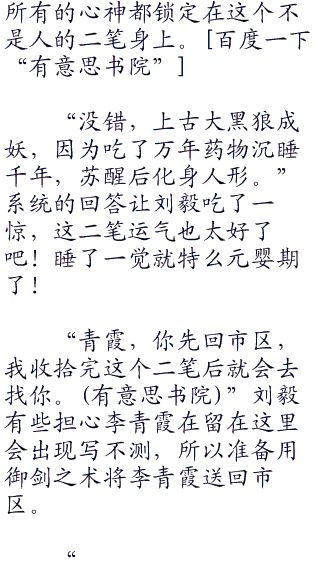 所有的心神都锁定在这个不
是人的二笔身上。[百度一下
“有意思书院”]
“没错，上古大黑狼成
妖，因为吃了万年药物沉睡
千年，苏醒后化身人形。”
系统的回答让刘毅吃了一
惊，这二笔运气也太好了
吧！睡了一觉就特么元婴期
了！
“青霞，你先回市区，
我收拾完这个二笔后就会去
找你。(有意思书院)”刘毅
有些担心李青霞在留在这里
会出现写不测，所以准备用
御剑之术将李青霞送回市
区。
“